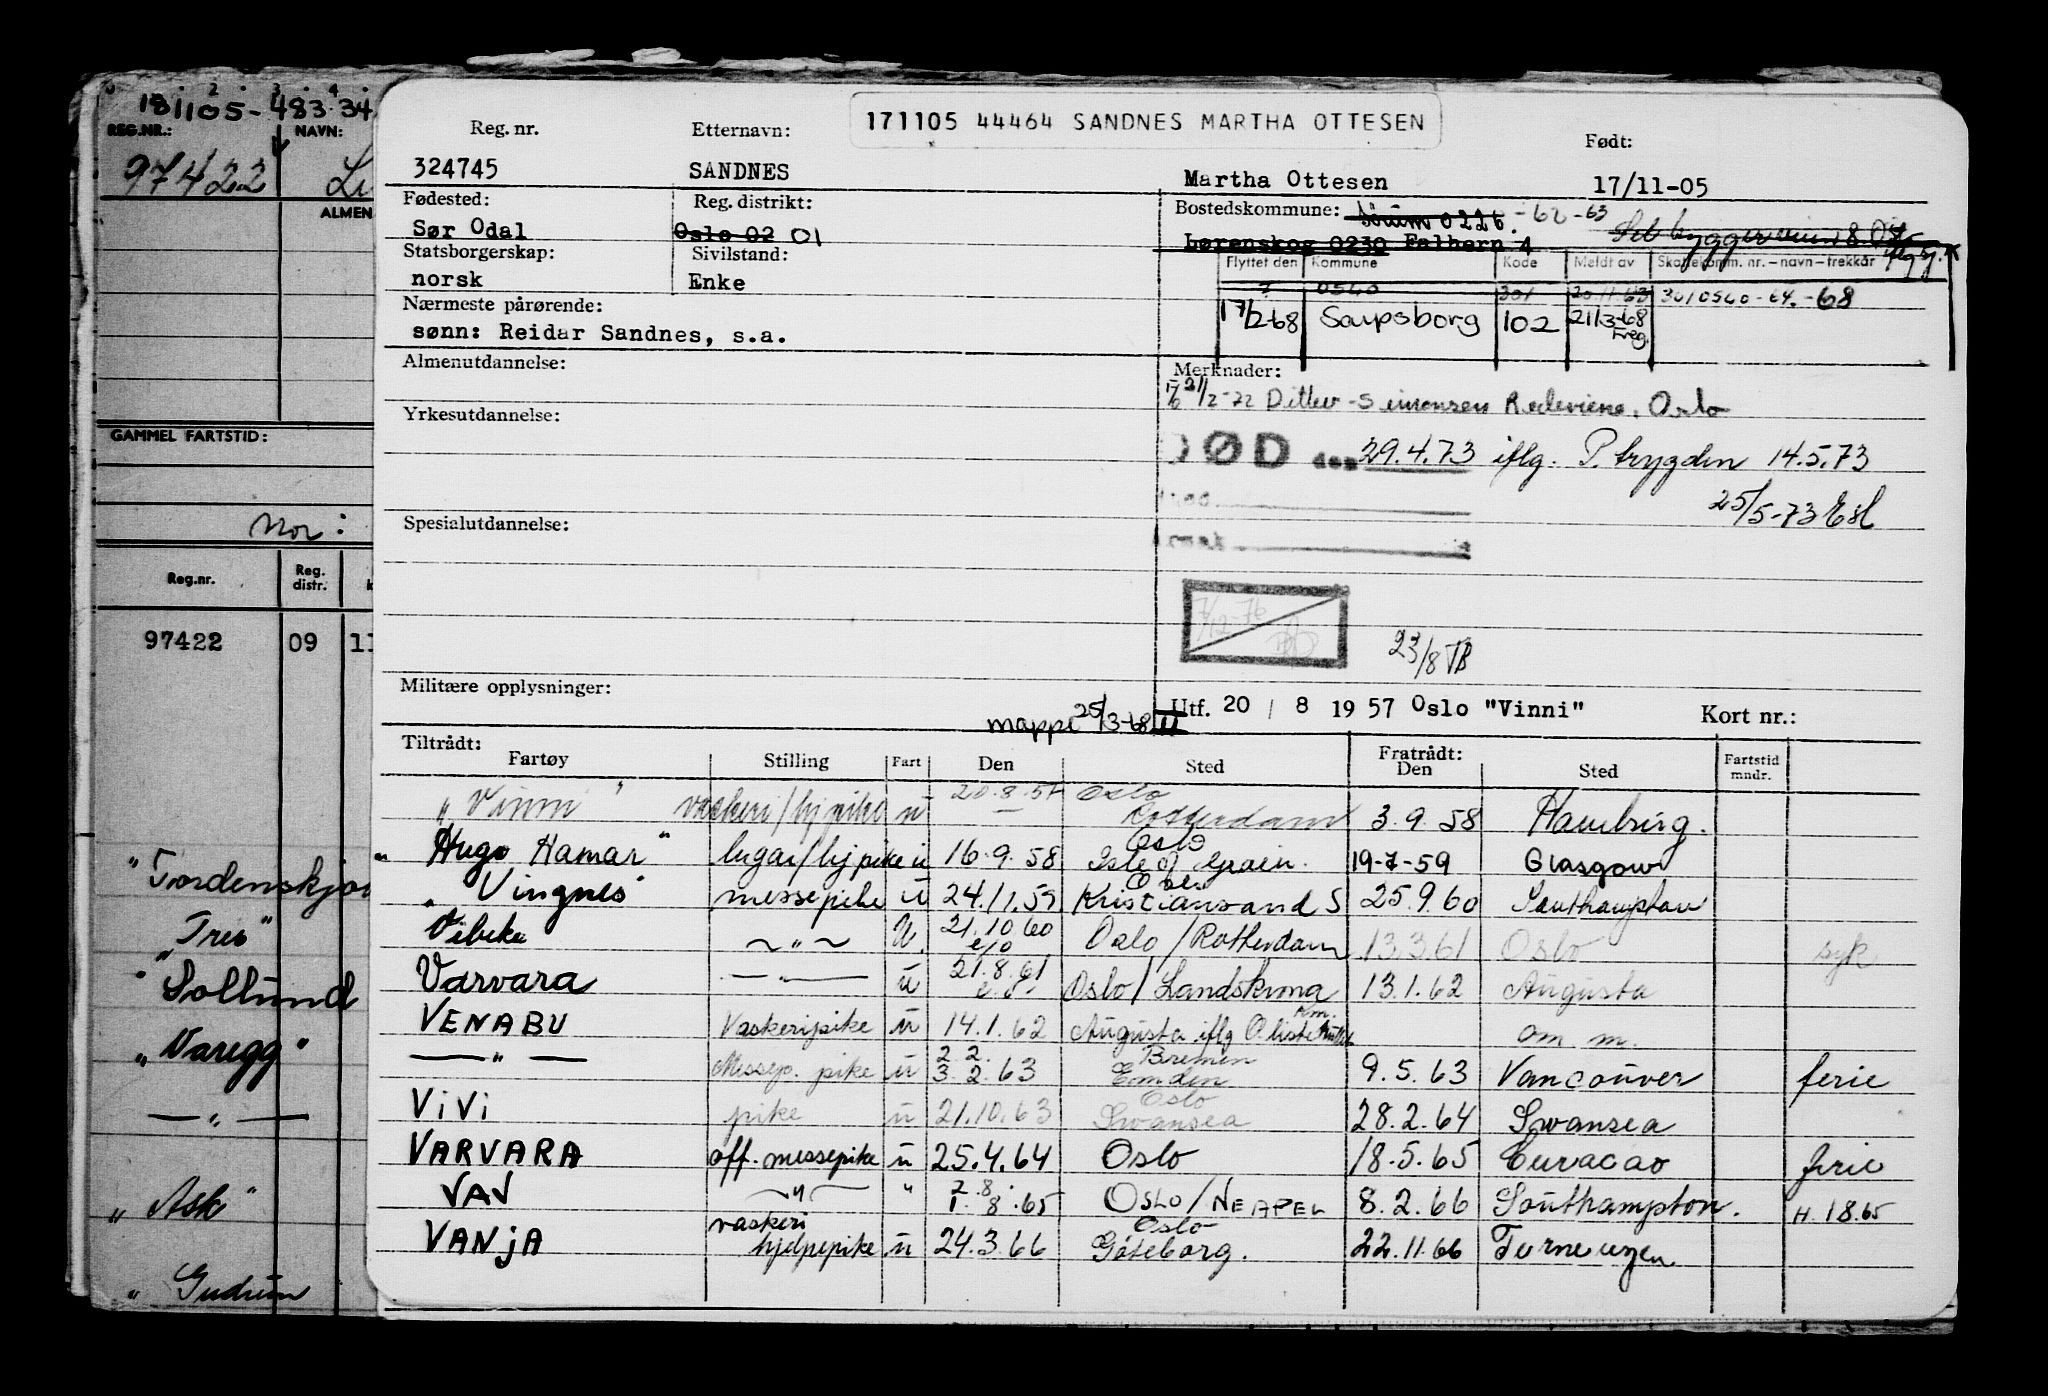 181105-483 34
REG.NR.: NAVN:
97422
ALMEN
GAMMEL FARTSTID:
Nor:
Reg.nr. Reg. distr.
97422 09 11
" Tordenskjo
" Tres "
" Sollund
" Varegg "
— " —
" Ask "
" Gudrun
171105 44464 SANDNES MARTHA OTTESEN
Reg. nr. Etternavn: Født:
324745 SANDNES Martha Ottesen 17/11-05
Fødested: Reg. distrikt: Bostedskommune: Sørum 0226. -62 -63
Sør Odal Oslo 02 01 Lørenskog 0230
Statsborgerskap: Sivilstand: Flyttet den Kommune Kode Meldt av Skattekomm. nr. – navn – trekkår
norsk Enke
7 0540 301 20.11.63 3010540-64.-68
Nærmeste pårørende: 17/2-68 Saupsborg 102 21/3-68 Freg.
sønn: Reidar Sandnes, s.a.
Almenutdannelse: Merknader:
21/12-72 Ditlev-Simonsen Rederiene, Oslo
Yrkesutdannelse:
DØD den 29.4.73 iflg. P. trygden 14.5.73
25/5-73
Spesialutdannelse:
7/12-76
23/8
Militære opplysninger: mappe 25/3-68 Utf. 20 / 8 1957 Oslo "Vinni" Kort nr.:
Tiltrådt: Fratrådt:
Fartøy Stilling Fart Den Sted Den Sted Fartstid mndr.
" Vinni " vaskeri/hj pike u 20.8.57 Oslo Rotterdam 3.9.58 Hamburg.
" Hugo Hamar " lugar/hj pike u 16.9.58 Oslo Isle of Grain. 19-7-59 Glasgow
" Vingnes " messepike u 24.11.59 Kristiansand S 25.9.60 Southampton
Vibeke — " — u. 21.10.60 Oslo / Rotterdam 13.3.61 Oslo syk
Varvara — " — u 21.8.61 Oslo / Landskrona 13.1.62 Augusta
VENABU Vaskeripike u 14.1.62 Augusta iflg O. liste om m.
— " — Messep. pike u 2.2. 3.2.63 Bremen Emden 9.5.63 Vancouver ferie
ViVi pike u 21.10.63 Oslo Swansea 28.2.64 Swansea
VARVARA off. messepike u 25.4.64 Oslo 18.5.65 Curacao ferie
VAV — " — " 7.8. 1.8.65 OSLO / NEAPEL 8.2.66 Southampton. H. 18.65
VANjA vaskeri hjelpepike u 24.3.66 Oslo Göteborg. 22.11.66 Terneuzen